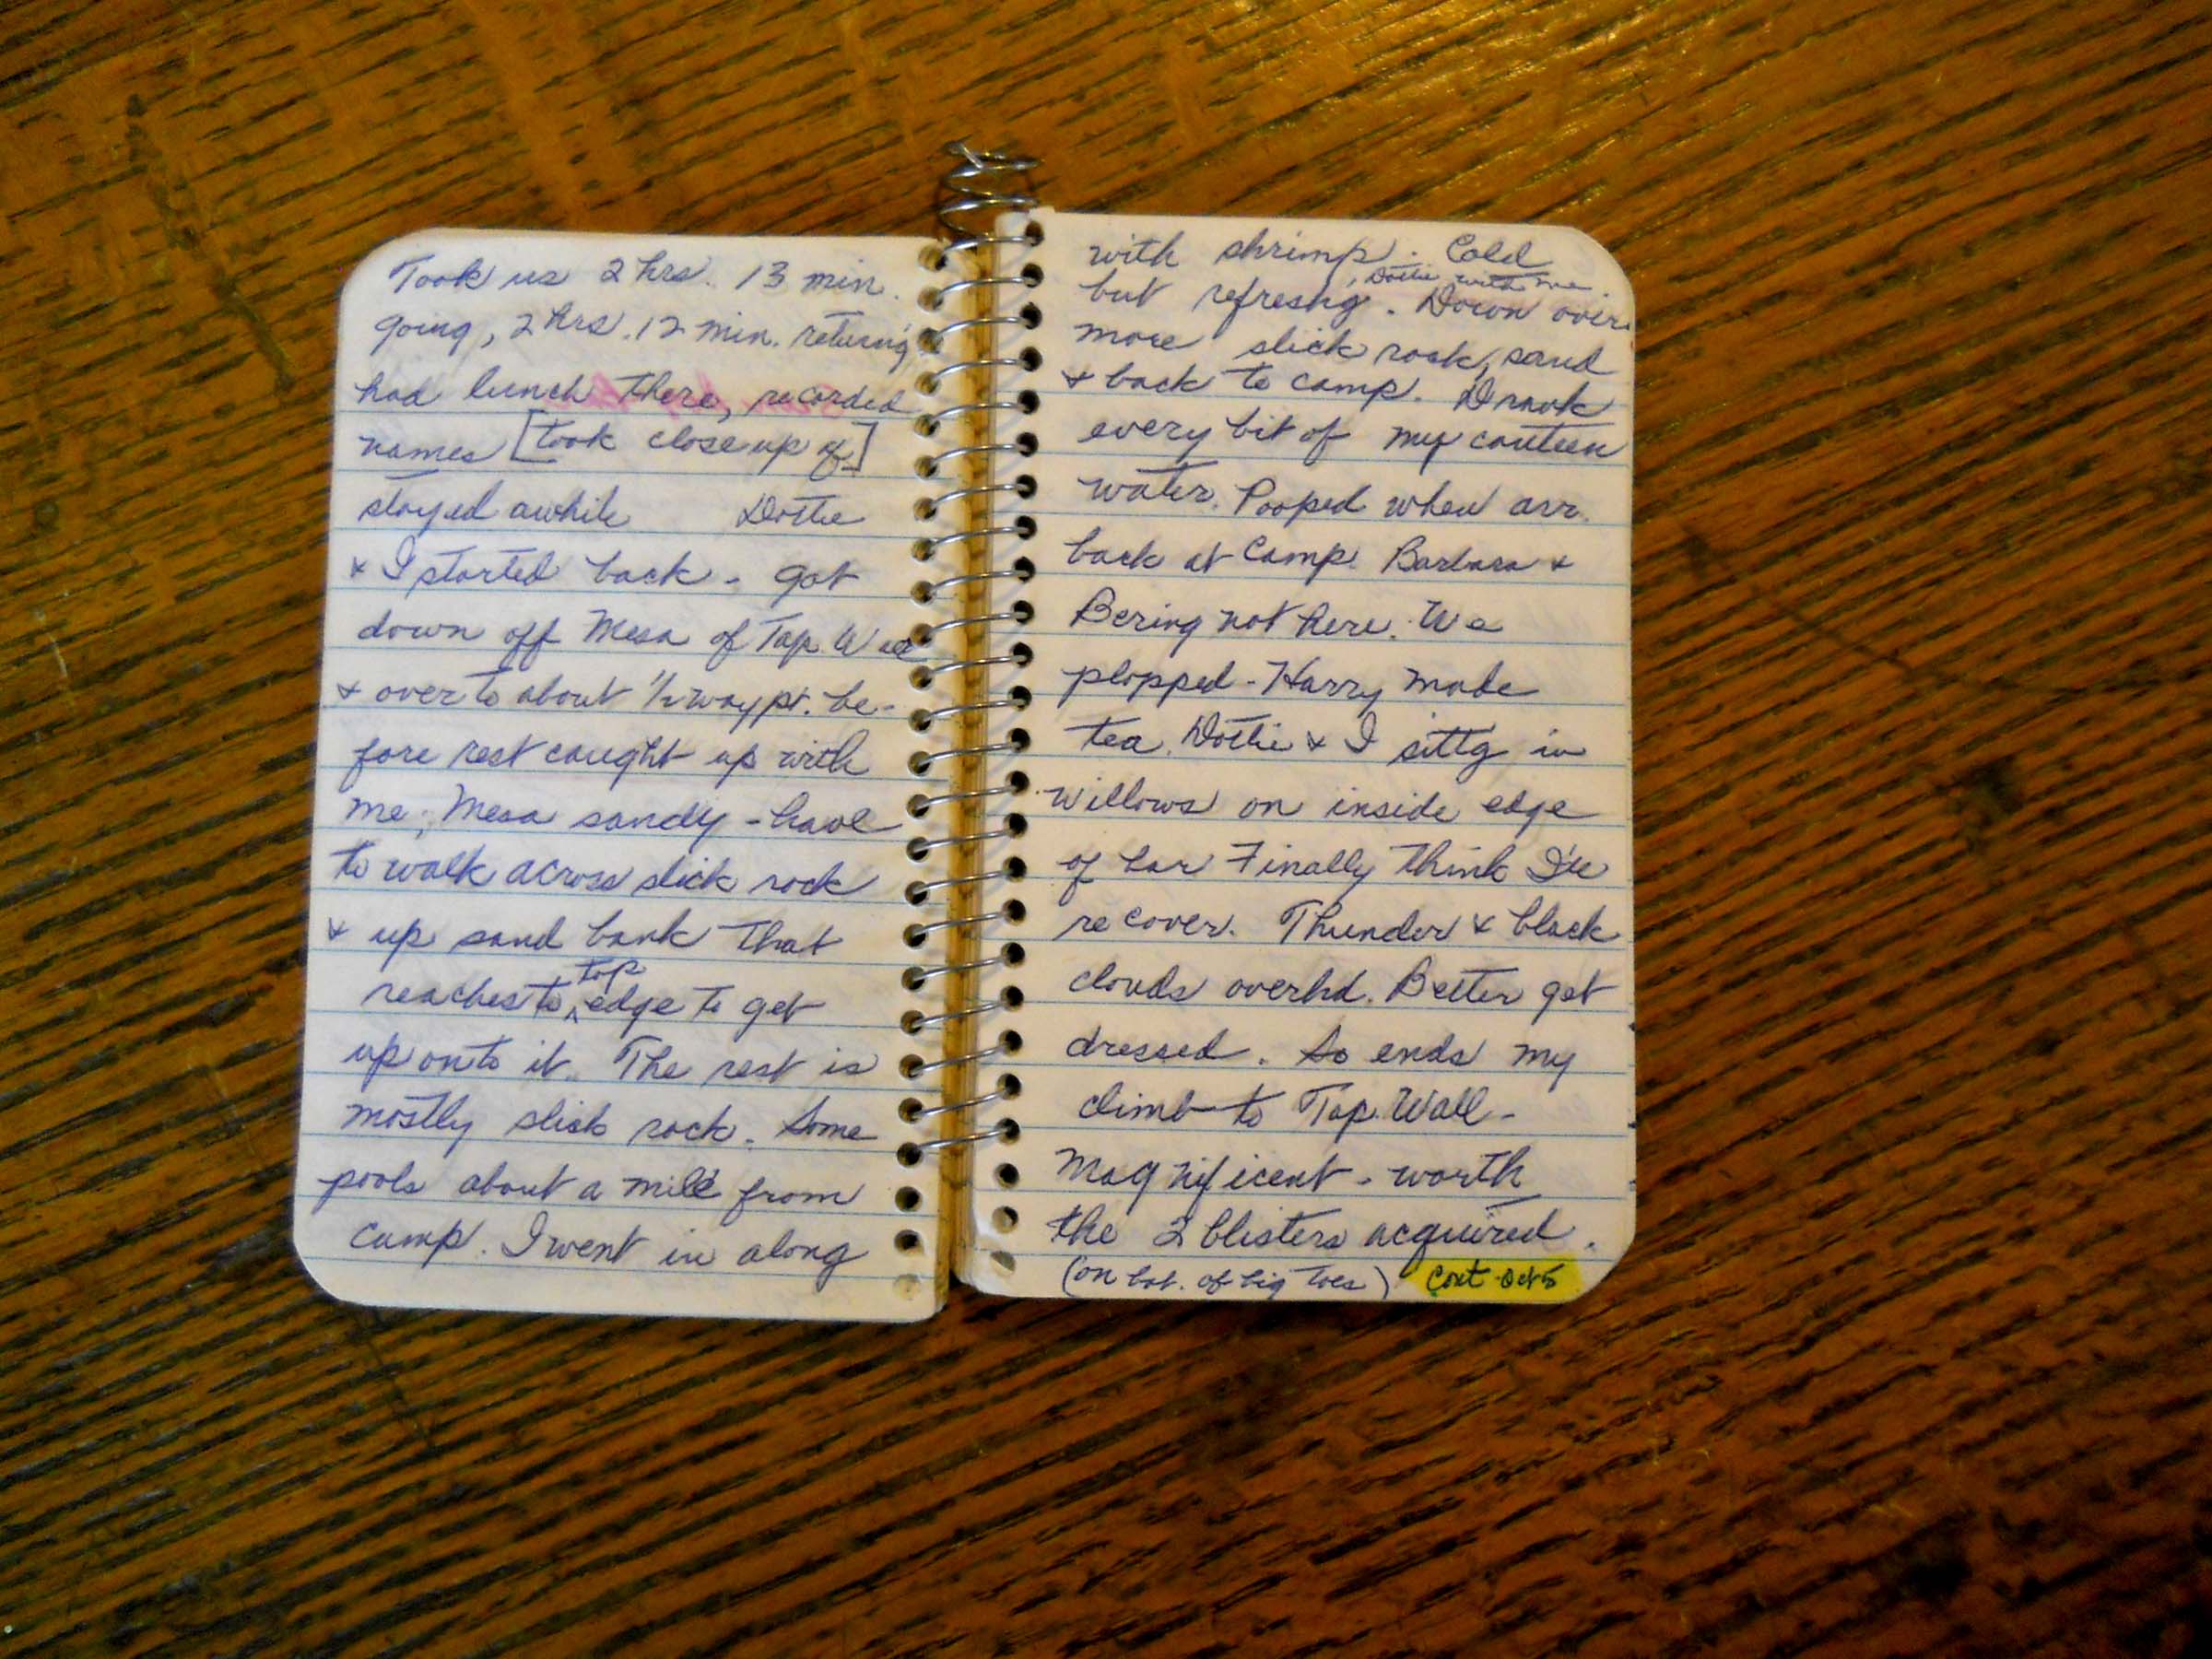 Took us 2 hrs. 13 min.
going, 2 hrs. 12 min. returng
had lunch there, recorded
names [took close up of]
stayed awhile Dottie
& I started back - got
down off Mesa of Tap. Wall
& over to about 1/2 way pt. be-
fore rest caught up with
me; Mesa sandy - have
to walk across slick rock
& up sand bank that
top
reaches to ^ edge to get
up onto it. The rest is
mostly slick rock. Some
pools about a mile from
camp. I went in along
with shrimp. Cold
, Dottie with me.
but refreshg. Down over
more slick rock, sand
& back to camp. Drank
every bit of my canteen
water. Pooped when arr.
back at camp. Barbara &
Bering not here. We
plopped - Harry made
tea. Dottie & I sittg in
willows on inside edge
of bar Finally think I'll
recover. Thunder & black
clouds overhd. Better get
dressed. So ends my
climb to Tap. Wall -
Magnificent - worth
the 2 blisters acquired.
(on bot. of big toes) Cont Oct 5